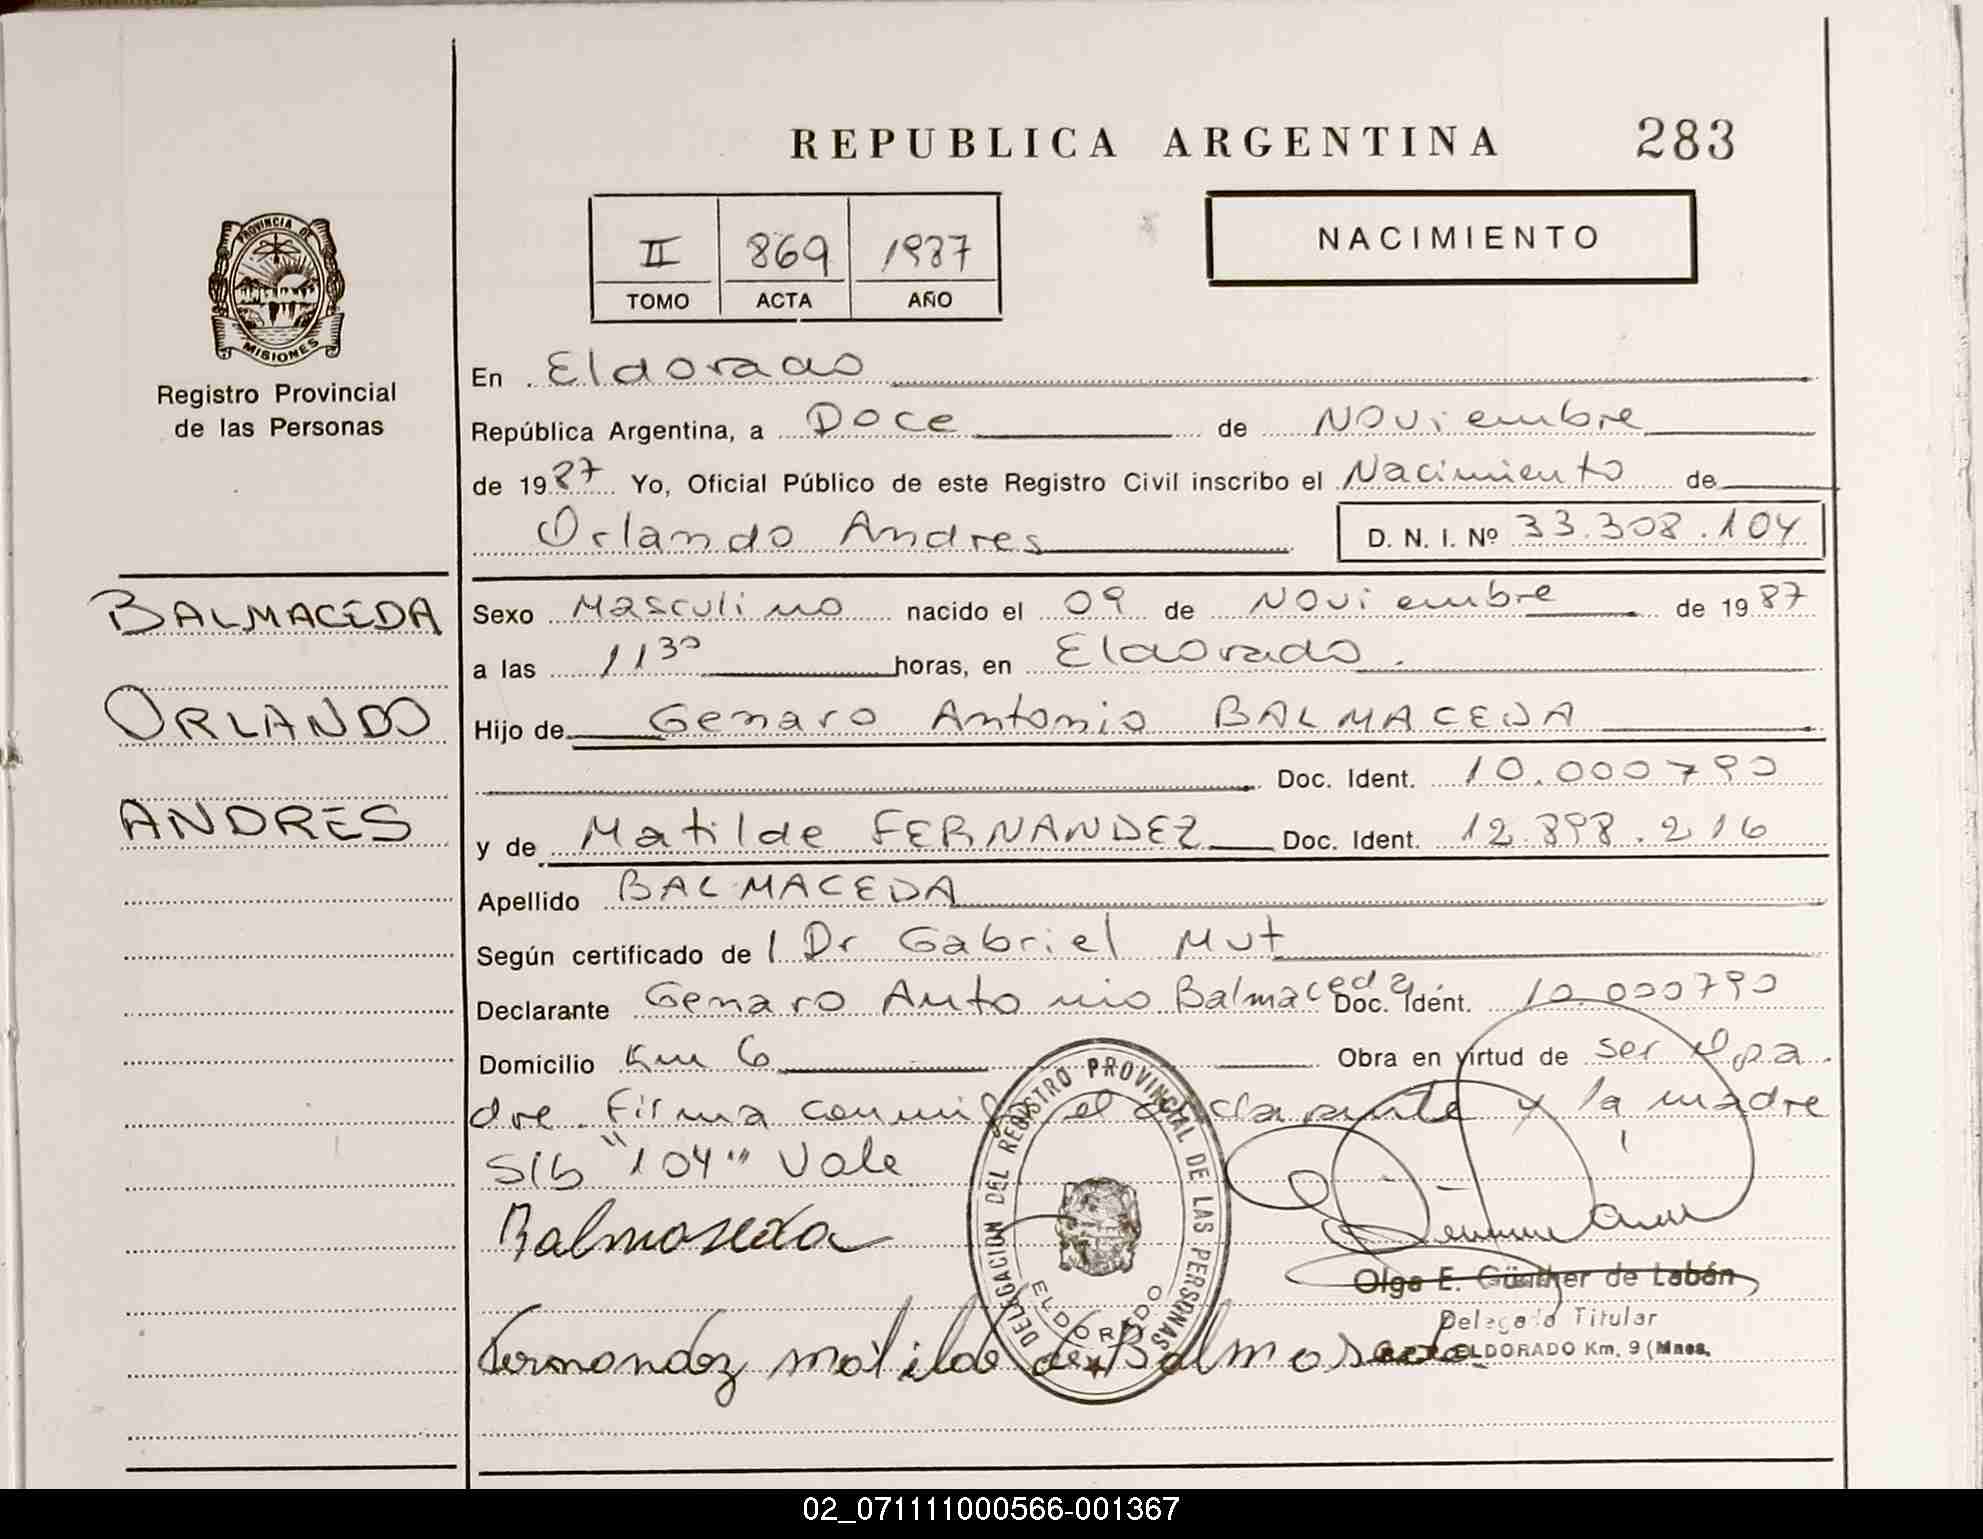 REPUBLICA ARGENTINA 283
PROVINCIA DE
MISIONES
Registro Provincial
de las Personas
II 869 1987
TOMO ACTA AÑO
NACIMIENTO
En Eldorado
República Argentina, a Doce de Noviembre
de 1987 Yo, Oficial Público de este Registro Civil inscribo el Nacimiento de
Orlando Andres D. N. I. Nº 33.308.104
BALMACEDA
ORLANDO
ANDRES
Sexo Masculino nacido el 09 de Noviembre de 1987
a las 11 30 horas, en Eldorado.
Hijo de Genaro Antonio BALMACEDA
Doc. Ident. 10.000790
y de Matilde FERNANDEZ Doc. Ident. 12.898.216
Apellido BALMACEDA
Según certificado de l Dr Gabriel Mut
Declarante Genaro Antonio Balmaceda Doc. Ident. 10.000790
Domicilio Km 6 Obra en virtud de ser el pa
dre. Firma conmigo el declarante y la madre
S/b "104" Vale
Balmoseda
Olga E. Günther de Labán
Delegada Titular
ELDORADO Km. 9 (Mnes.
Fernandez matilde de Balmoseda
DELEGACION DEL REGISTRO PROVINCIAL DE LAS PERSONAS
ELDORADO
02_071111000566-001367